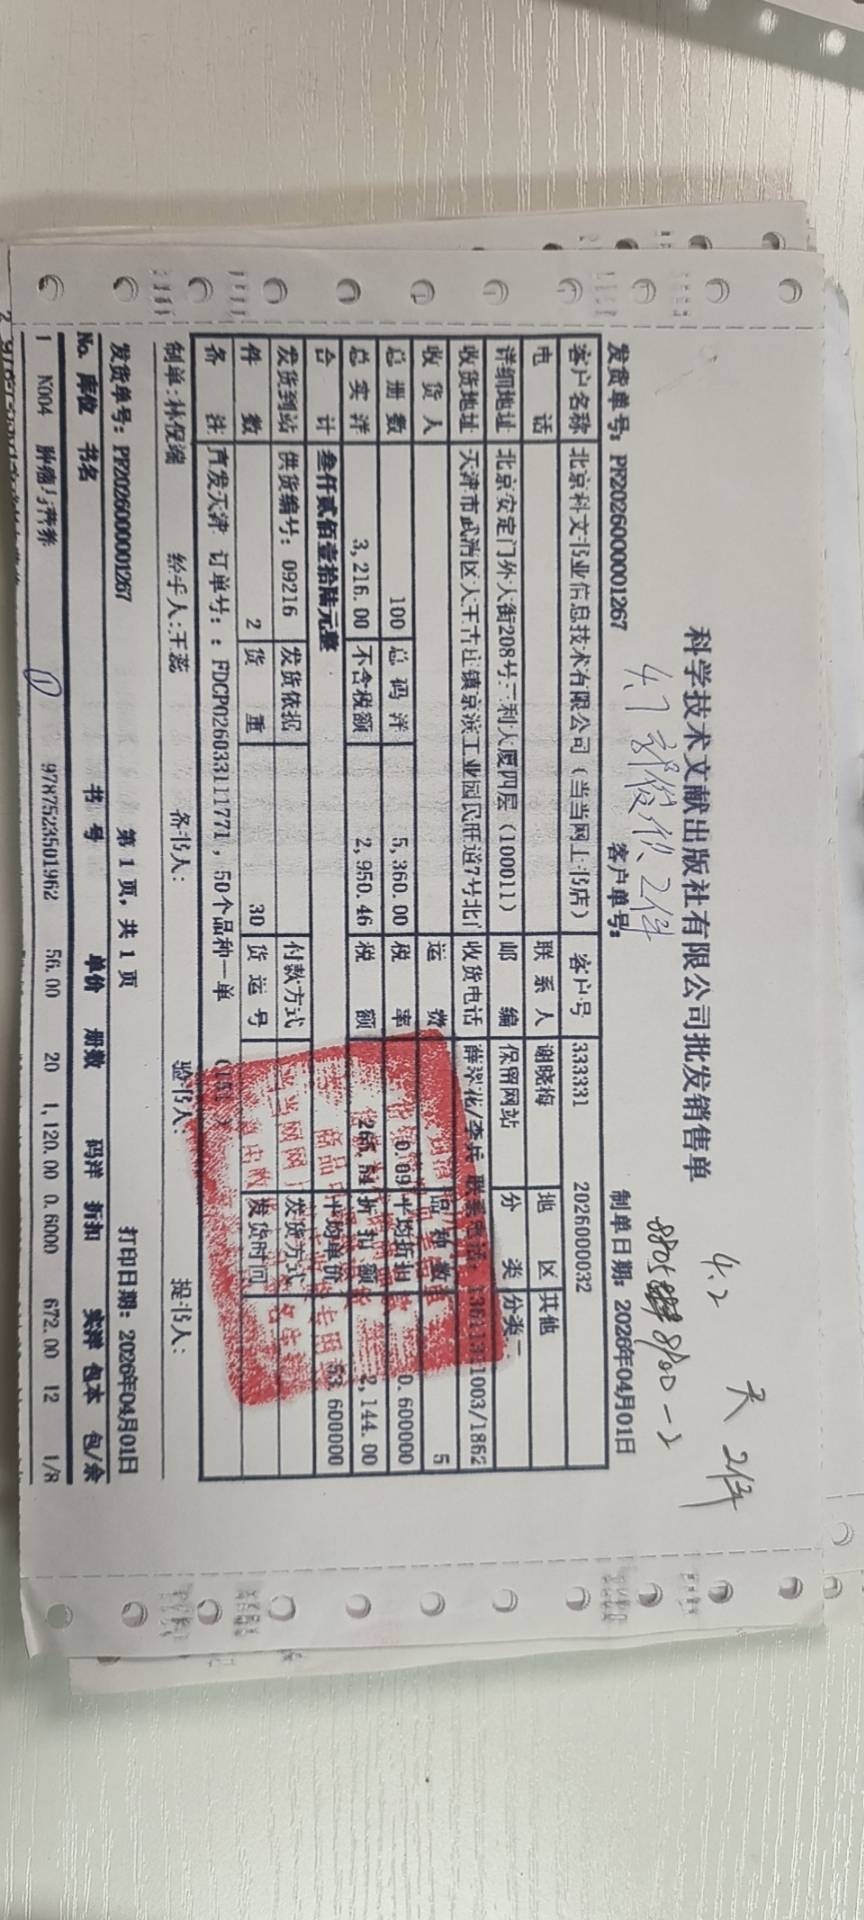 科学技术文献出版社有限公司批发销售单
4.2
天 2件
发货单号：PF2026000001267 客户单号： 制单日期：2026年04月01日
4.7 2件
客户名称 北京科文书业信息技术有限公司（当当网上书店） 客户号 333331 2026000032
电 话 联系人 谢晓梅 地 区 其他
详细地址 北京安定门外大街208号三利大厦四层（100011） 邮 编 保留网站 分 类 分类一
收货地址 天津市武清区大王古庄镇京滨工业园民旺道7号北门 收货电话 薛翠花/李兵 联系电话：
收 货 人 运 费 品种数 5
总 册 数 100 总 码 洋 5,360.00 税 率 0.09 平均折扣 0.600000
总 实 洋 3,216.00 不含税额 2,950.46 税 额 265.54 折 扣 额 2,144.00
合 计 叁仟贰佰壹拾陆元整 平均单价 53.600000
发货到站 供货编号：09216 发货依据 付款方式 发货方式
件 数 2 货 重 30 货 运 号 发货时间
备 注 直发天津 订单号：：FDCP026033111771，50个品种一单
制单：林保端 经手人：王蕊 备书人： 验书人： 提书人：
发货单号：PF2026000001267 第 1 页，共 1 页 打印日期：2026年04月01日
No. 库位 书名 书 号 单价 册数 码洋 折扣 实洋 包本 包/余
1 N004 肿瘤与营养 ① 9787523501962 56.00 20 1,120.00 0.6000 672.00 12 1/8